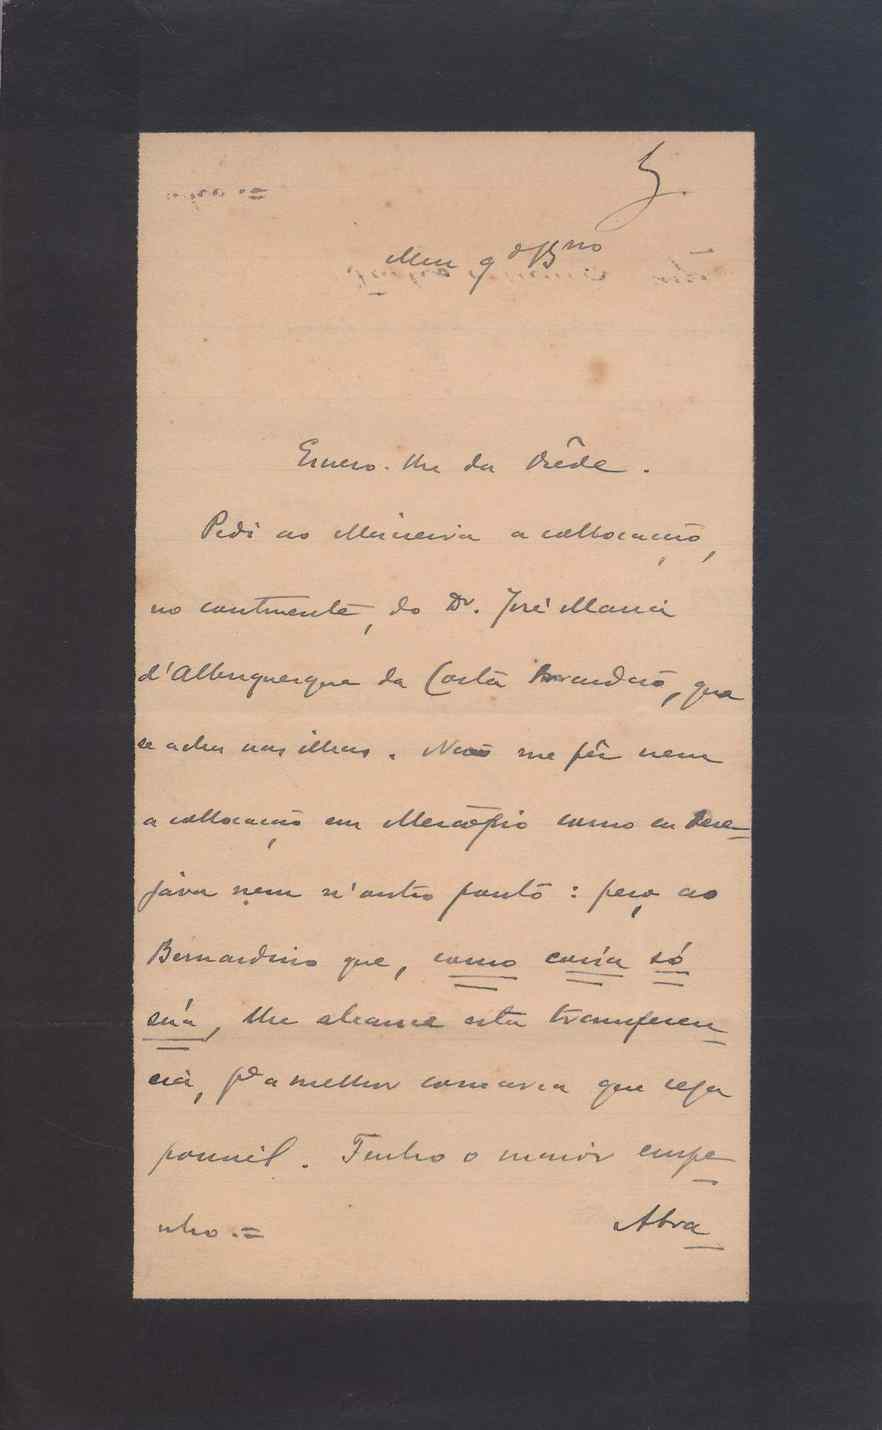 5.
Meu q.do B.no
Escrevo-lhe da Rêde.
Pedi ao Moreira a collocação,
no continente, do Dr. José Maria
d'Albuquerque da Costa Brandão, que
se acha nas ilhas. Não me fêz nem
a collocação em como eu dese-
java nem n'outro ponto: peço ao
Bernardino que, como coisa só
súa, lhe alcance esta transferen-
cia, p.a a melhor comarca que seja
possivel. Tenho o maior empe-
nho. =
Abra-